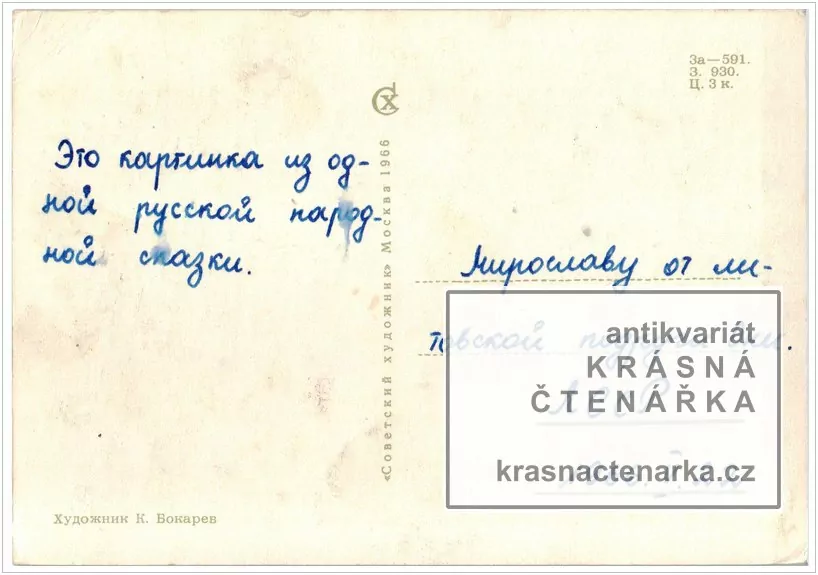 За—591.
З. 930.
Ц. 3 к.
СХ
Это картинка из од-
ной русской народ-
ной сказки.
«Советский художник» Москва 1966
Мирославу от ли-
товской
antikvariát
KRÁSNÁ
ČTENÁŘKA
krasnactenarka.cz
Художник К. Бокарев